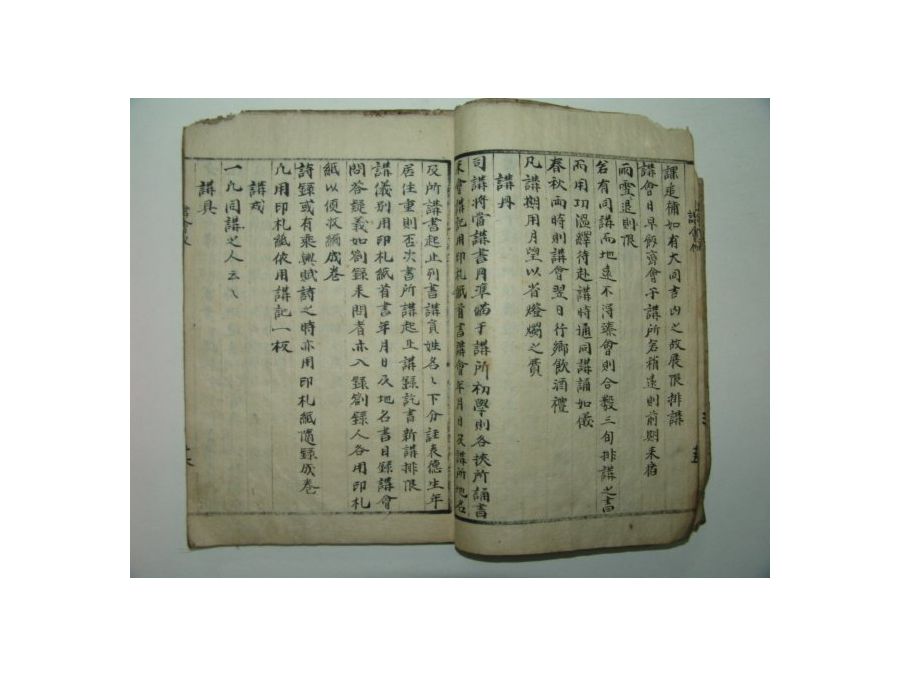 課進補如有大同吉凶之故展限排講
講會日早飯齊會于講所若稍遠則前期來宿
雨雪退則限
若有同講而地遠不得臻會則合數三旬排講之書
而用功溫繹待赴講時通同講誦如儀
春秋兩時則講會翌日行鄉飲酒禮
凡講期用月望以省燈燭之費
講冊
司講將當講書月準備于講所初學則各挾所誦書
來會講記用印札紙首書講會年月日及講所地名
及所講書起止列書講員姓名々下分註表德生年
居住重則否次書所講起止講錄訖書新講排限
講儀別用印札紙首書年月日及地名書日錄講會
問答疑義如劄錄來問者亦入錄劄錄人各用印札
紙以便收編成卷
詩錄或有乘興賦詩之時亦用印札紙隨錄成卷
凡用印札紙依用講記一板
講戒
一凡同講之人云々
講具